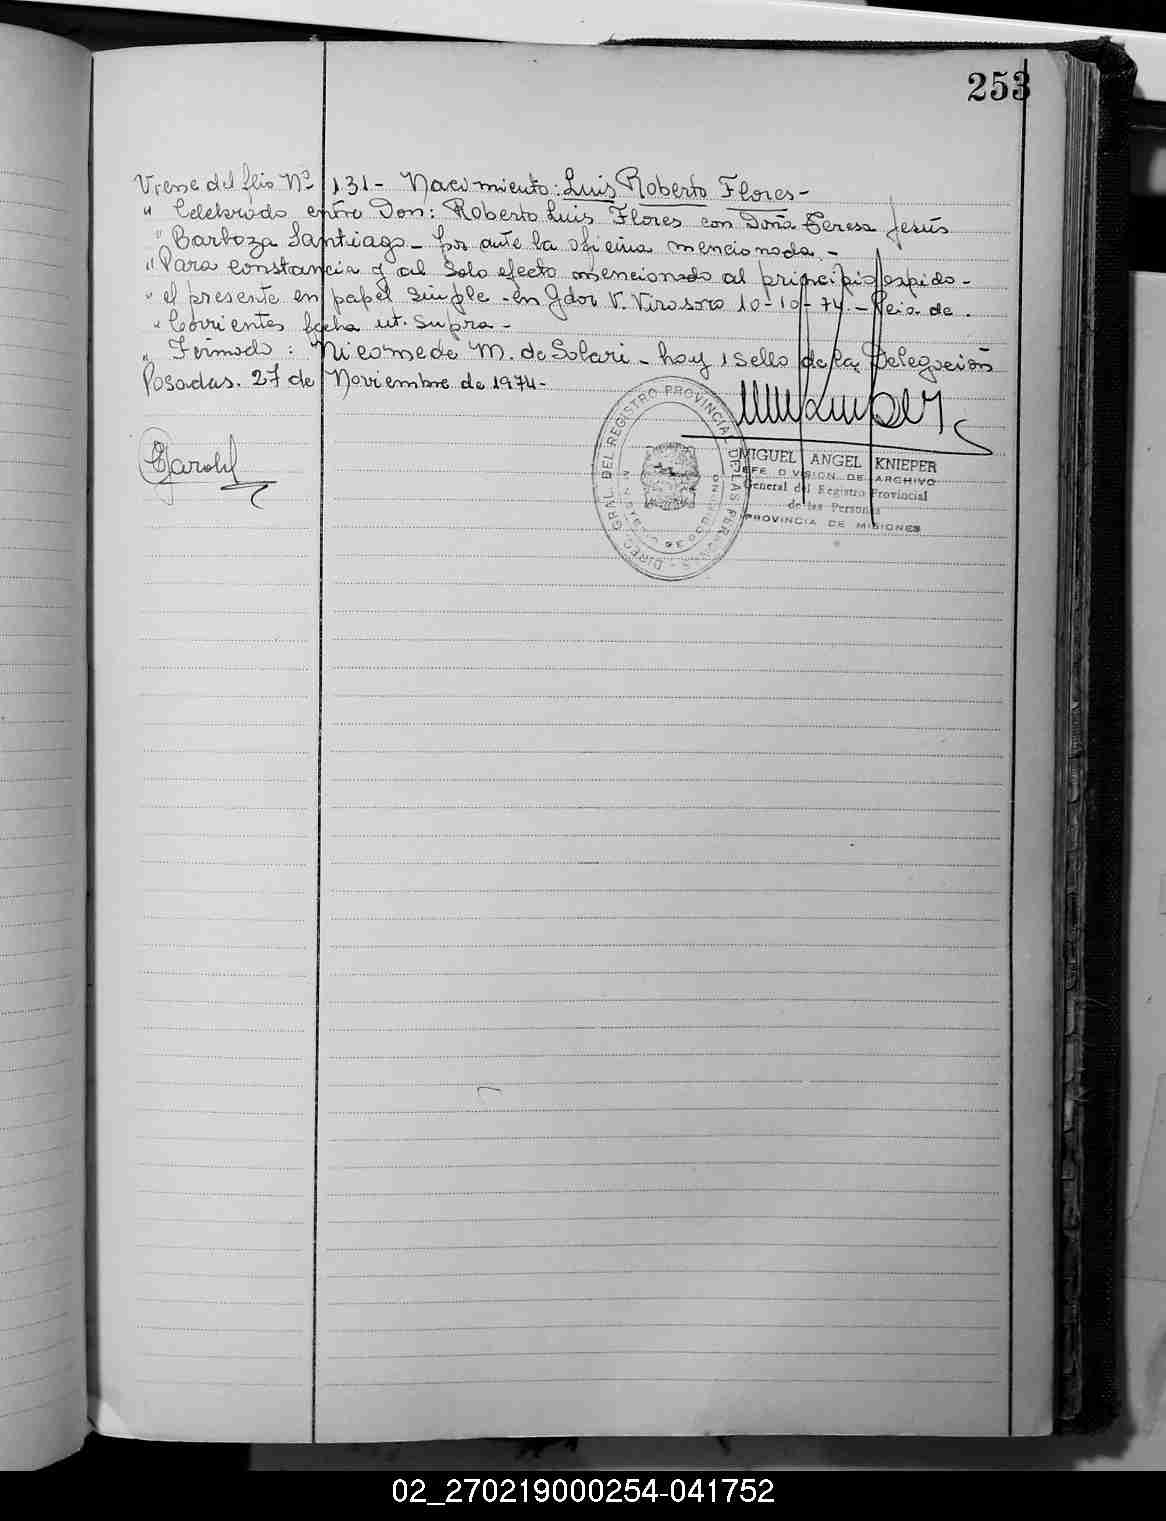 253
Viene del folio Nº 131- Nacimiento: Luis Roberto Flores-
" Celebrado entre Don: Roberto Luis Flores con Doña Teresa Jesús
" Barboza Santiago- por ante la oficina mencionada.-
" Para constancia y al solo efecto mencionado al principio expido-
" el presente en papel simple-en Gdor V. Virasoro 10-10-74.- Pcia. de.
" Corrientes fecha ut. supra-
" Firmado: Nicomede M. de Solari- hay 1 sello de la Delegación
Posadas. 27 de Noviembre de 1974-
DIREC. GRAL. DEL REGISTRO PROVINCIAL DE LAS PERSONAS
MIGUEL ANGEL KNIEPER
JEFE DIVISION DE ARCHIVO
General del Registro Provincial
de las Personas
PROVINCIA DE MISIONES
02_270219000254-041752